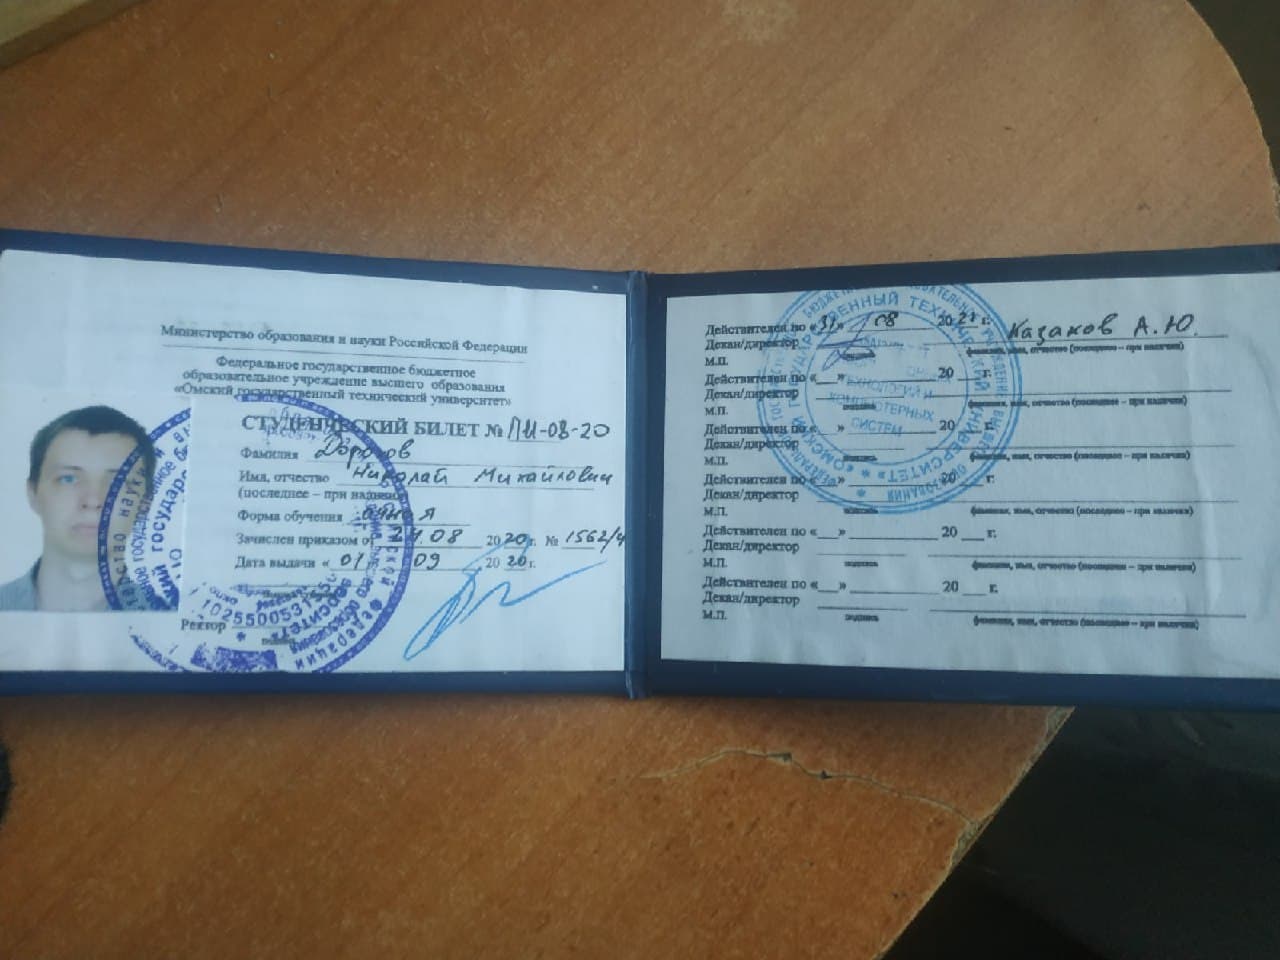 Министерство образования и науки Российской Федерации
Федеральное государственное бюджетное
образовательное учреждение высшего образования
«Омский государственный технический университет»
СТУДЕНЧЕСКИЙ БИЛЕТ № ПИ-08-20
Фамилия
Имя, отчество Николай Михайлович
(последнее – при наличии)
Форма обучения очная
Зачислен приказом от 24.08 2020г. № 1562/4
Дата выдачи «01 09 2020г.
Ректор
1025500531550
Действителен по «31» 08 2021 г. Казаков А.Ю.
Декан/директор
подпись фамилия, имя, отчество (последнее – при наличии)
М.П.
Действителен по «__» 20 г.
Декан/директор
подпись фамилия, имя, отчество (последнее – при наличии)
М.П.
Действителен по «__» 20 г.
Декан/директор
подпись фамилия, имя, отчество (последнее – при наличии)
М.П.
Действителен по «__» 20 г.
Декан/директор
подпись фамилия, имя, отчество (последнее – при наличии)
М.П.
Действителен по «__» 20 г.
Декан/директор
подпись фамилия, имя, отчество (последнее – при наличии)
М.П.
Действителен по «__» 20 г.
Декан/директор
подпись фамилия, имя, отчество (последнее – при наличии)
М.П.
«ОМСКИЙ ГОСУДАРСТВЕННЫЙ ТЕХНИЧЕСКИЙ УНИВЕРСИТЕТ»
ТЕХНОЛОГИЙ И
КОМПЬЮТЕРНЫХ
СИСТЕМ